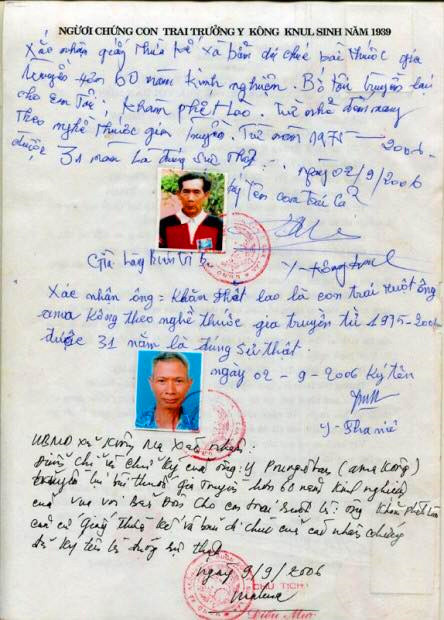 NGƯỜI CHỨNG CON TRAI TRƯỞNG Y KÔNG KNUL SINH NĂM 1939
Xác nhận giấy thừa kế và bản di chúc bài thuốc gia
truyền hơn 60 năm kinh nghiệm. Bố tôi truyền lại
cho em tôi: Khăm Phết Lao. Từ nhỏ đến nay
theo nghề thuốc gia truyền. Từ năm 1975 – 2006
được 31 năm là đúng sự thật.
ngày 02/9/2006
ký tên con trai cả
Y-Kông Knul
Già làng
Xác nhận ông: Khăm Phết Lao là con trai ruột ông
ama Kông theo nghề thuốc gia truyền từ 1975-2006
được 31 năm là đúng sự thật
ngày 02-9-2006 Ký tên
UBND xã Krông Na xác nhận:
chữ ký của ông: Y Prung (ama Kông)
bài thuốc gia truyền hơn 60 năm kinh nghiệm
của vua voi Bản Đôn cho con trai ruột là: ông Khăm Phết Lào
căn cứ giấy thừa kế và bản di chúc của các nhân chứng
đã ký tên là đúng sự thật
ngày 9/9/2006
CHỦ TỊCH